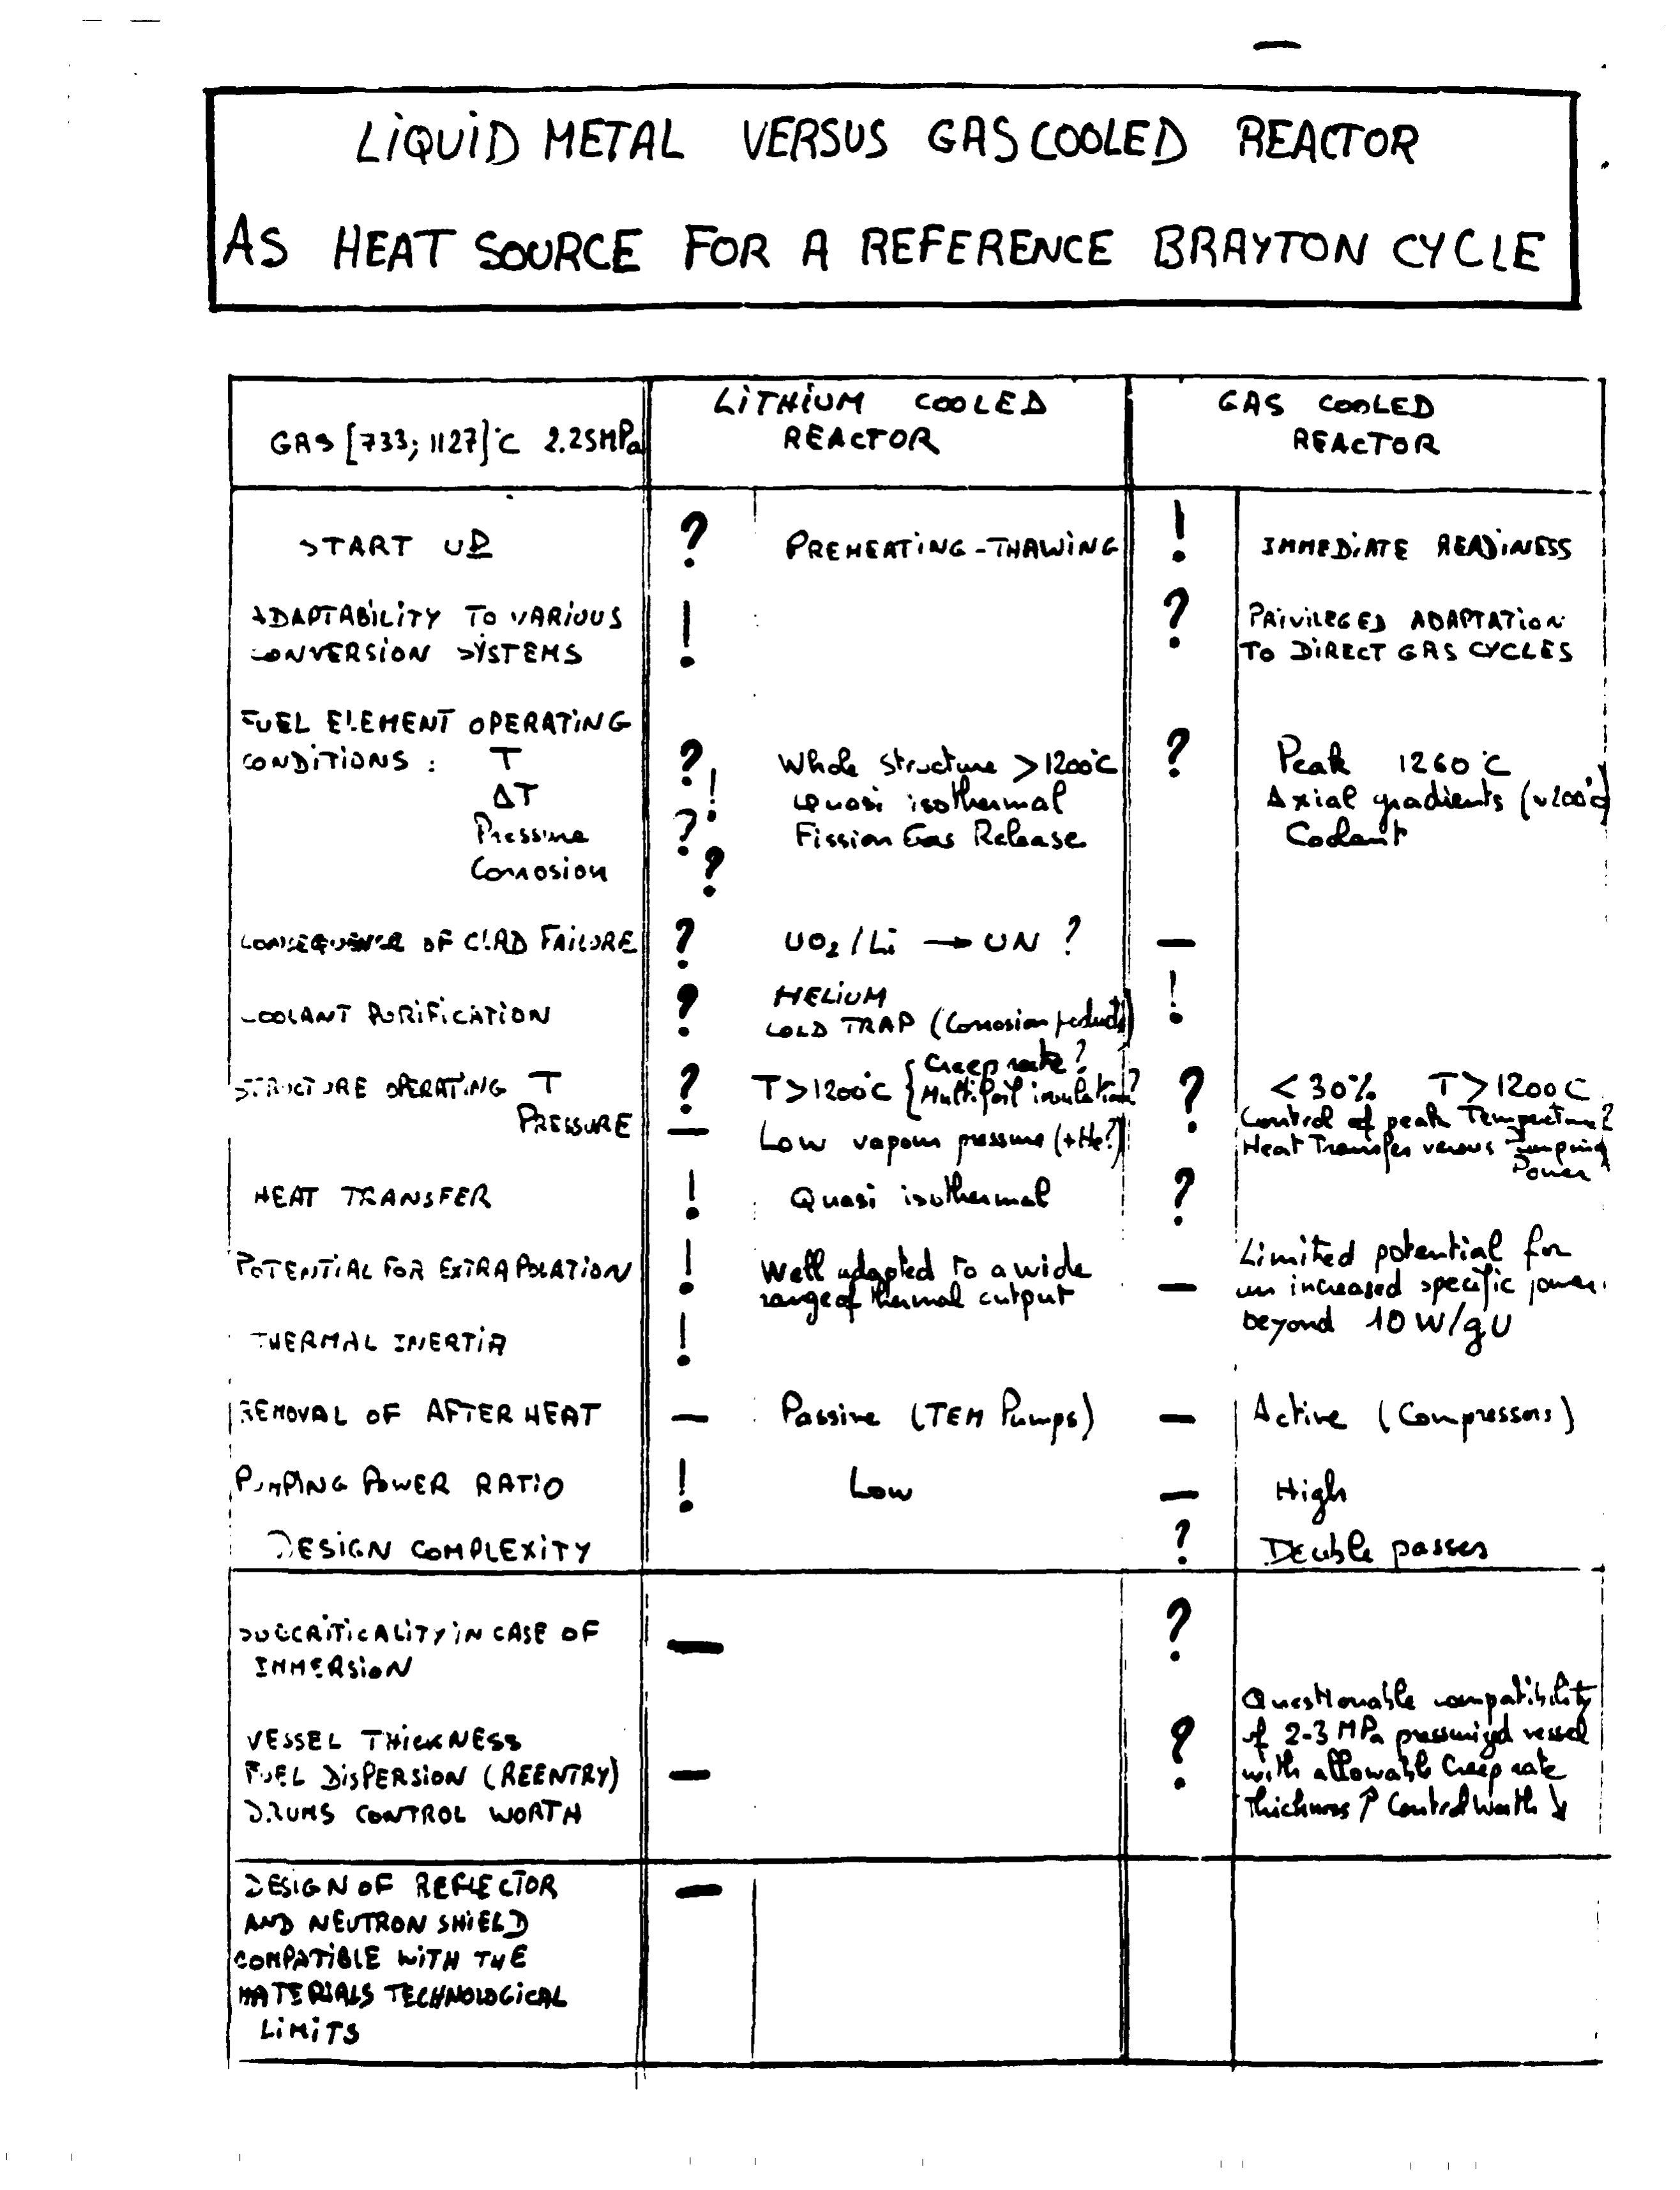 LIQUID METAL VERSUS GAS COOLED REACTOR
AS HEAT SOURCE FOR A REFERENCE BRAYTON CYCLE
GAS [733; 1127]°C 2.25MPa
LITHIUM COOLED
REACTOR
GAS COOLED
REACTOR
START UP
?
PREHEATING-THAWING
!
IMMEDIATE READINESS
ADAPTABILITY TO VARIOUS
CONVERSION SYSTEMS
!
?
PRIVILEGED ADAPTATION
TO DIRECT GAS CYCLES
FUEL ELEMENT OPERATING
CONDITIONS : T
ΔT
Pressure
Corrosion
?
!
?
?
Whole structure >1200°C
Quasi isothermal
Fission Gas Release
?
Peak 1260°C
Axial gradients (~200°C)
Coolant
CONSEQUENCE OF CLAD FAILURE
?
UO2/Li → UN ?
—
COOLANT PURIFICATION
?
HELIUM
COLD TRAP (Corrosion products)
!
STRUCTURE OPERATING T
PRESSURE
?
—
T>1200°C { Creep rate ?
Multifoil insulation?
Low vapour pressure (+He?)
?
< 30% T>1200C
Control of peak Temperature?
Heat Transfer versus Pumping
Power
HEAT TRANSFER
!
Quasi isothermal
?
POTENTIAL FOR EXTRAPOLATION
!
Well adapted to a wide
range of thermal output
—
Limited potential for
an increased specific power
beyond 10 W/gU
THERMAL INERTIA
!
REMOVAL OF AFTER HEAT
—
Passive (TEM Pumps)
—
Active (Compressors)
PUMPING POWER RATIO
!
Low
—
High
DESIGN COMPLEXITY
?
Double passes
SUBCRITICALITY IN CASE OF
IMMERSION
—
?
VESSEL THICKNESS
FUEL DISPERSION (REENTRY)
DRUMS CONTROL WORTH
—
?
Questionable compatibility
of 2-3 MPa pressurized vessel
with allowable Creep rate
Thickness ↗ Control Worth ↘
DESIGN OF REFLECTOR
AND NEUTRON SHIELD
COMPATIBLE WITH THE
MATERIALS TECHNOLOGICAL
LIMITS
—